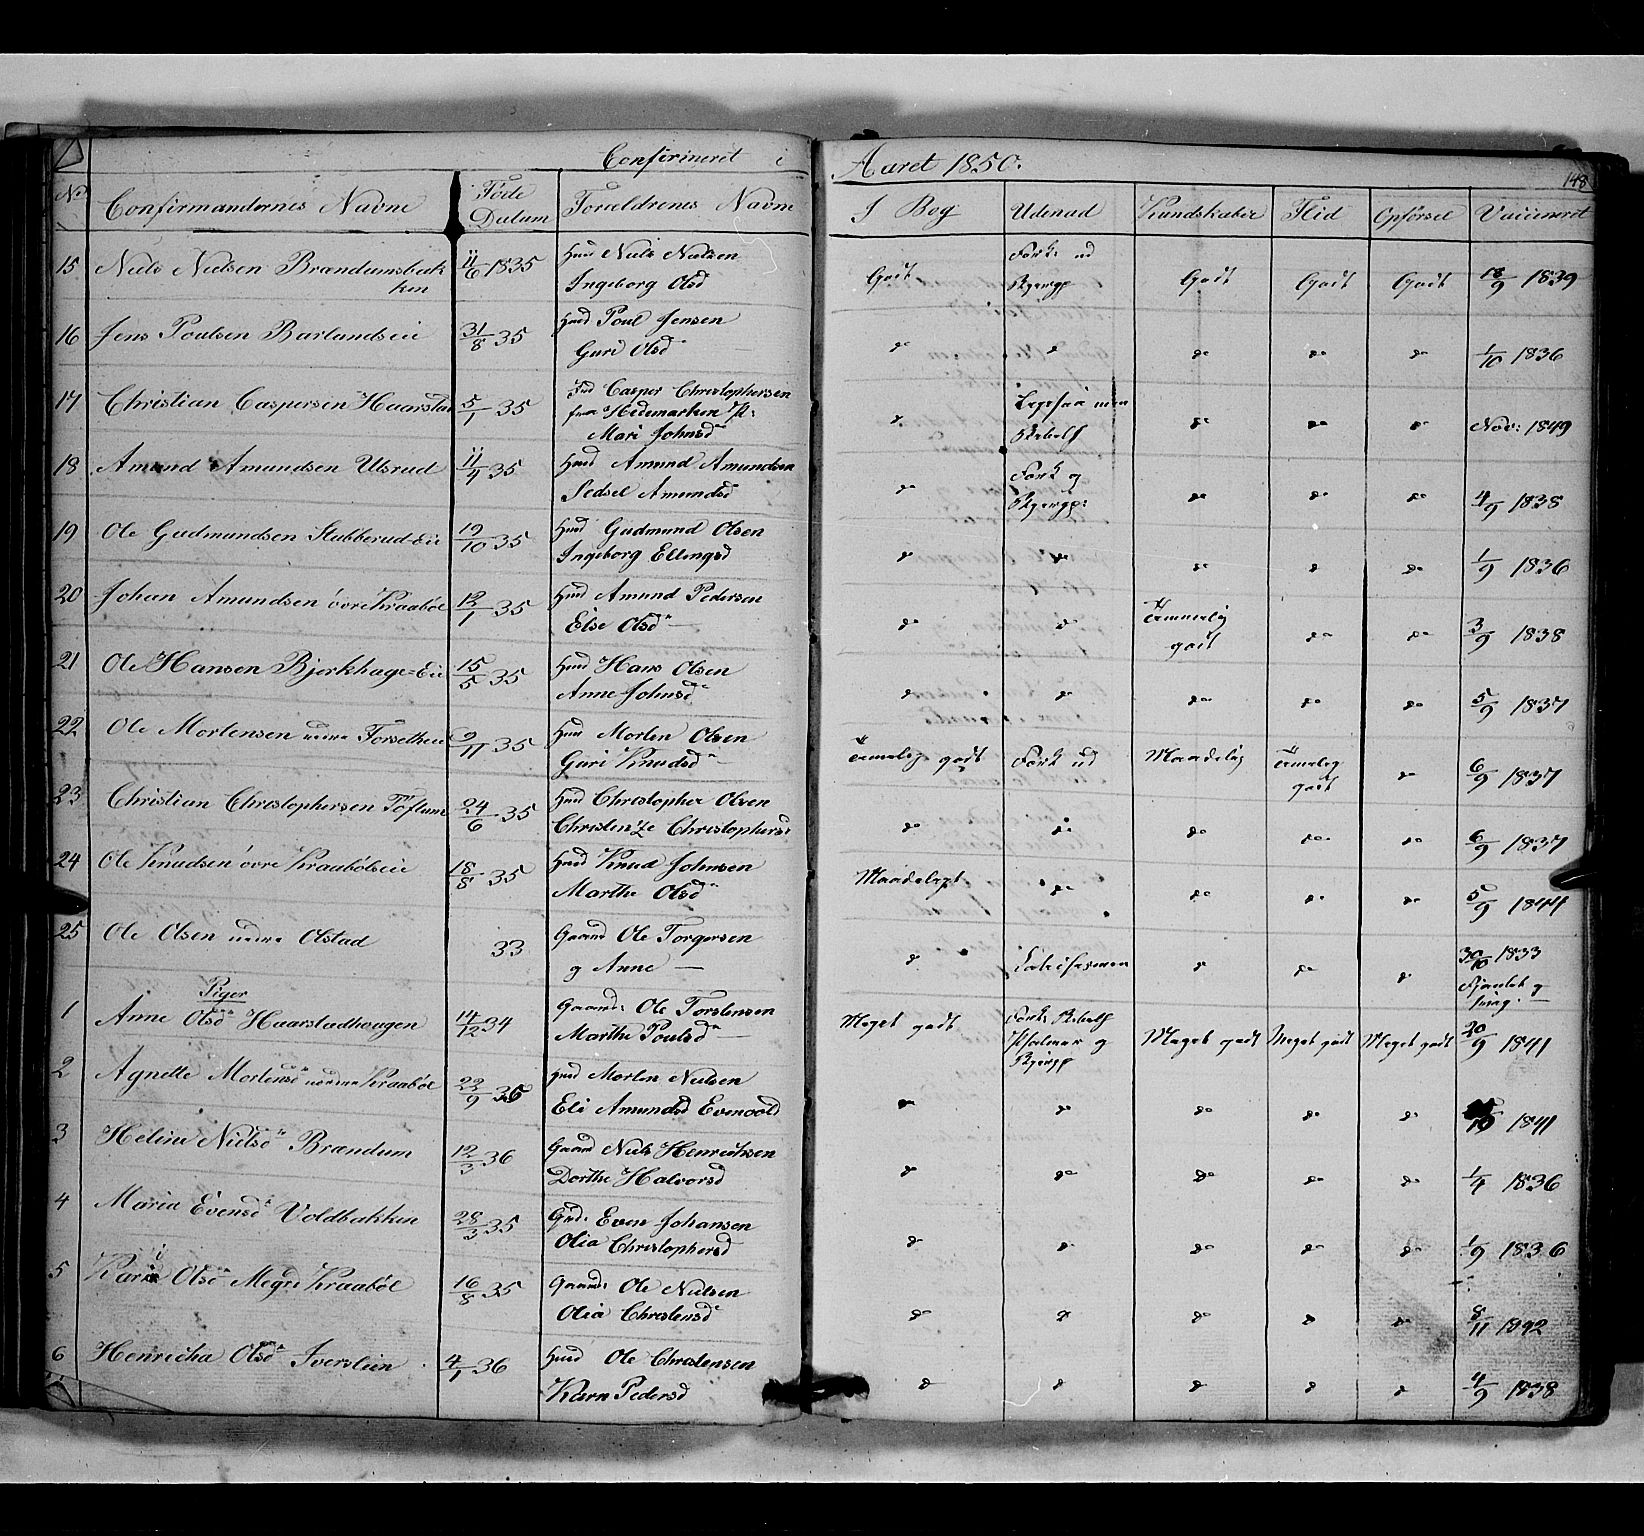 Confirmeret i Aaret 1850.
148
No Confirmandernes Navne Føde Datum Forældrenes Navne I Bog Udenad Kundskaber Flid Opførsel Vaccineret
15 Niels Nielsen Brændumsbak
ken 11/6 1835 Huusmd Niels Nielsen
Ingeborg Olsd Godt Fork: ud Godt Godt Godt 18/9 1839
16 Jens Poulsen Barlundseie 31/8 35 Huusmd Poul Jensen
Guri Olsd do do do do do 1/10 1836
17 Christian Caspersen Haarstad 5/1 35 Casper Christophersen
fra Hedemarken
Mari Johnsd do do do do Nov: 1849
18 Amund Amundsen Ulsrud 11/4 35 Huusmd Amund Amundsen
Sedsel Amundsd do Fork og do do do 4/9 1838
19 Ole Gudmundsen Stubberud-Eie 19/10 35 Huusmd Gudmund Olsen
Ingeborg Ellingsd do do do do do 1/9 1836
20 Johan Amundsen øvre Kraabøl 12/1 35 Huusmd Amund Pedersen
Else Olsd do do Temmelig
godt do do 3/9 1838
21 Ole Hansen Bjerkhage-Eie 15/5 35 Huusmd Hans Olsen
Anne Johnsd do do do do do 5/9 1837
22 Ole Mortensen nedre Forsetheie 9/11 35 Huusmd Morten Olsen
Guri Knudsd Temelig godt Fork ud Maadelig Temelig
godt do 6/9 1837
23 Christian Christophersen Toftum 24/6 35 Huusmd Christopher Olsen
Christenze Christophersd do do do do do 6/9 1837
24 Ole Knudsen øvre Kraabølseie 18/8 35 Huusmd Knud Johnsen
Marthe Olsd Maadeligt do do do do 5/9 1844
25 Ole Olsen nedre Olstad 33 Gaamd Ole Torgersen
og Anne — do do do do 30/10 1833
Piger
1 Anne Olsd Haarstadhaugen 14/12 34 Gaamd: Ole Torstensen
Marthe Poulsd Meget godt Meget godt Meget godt Meget godt 20/9 1841
2 Agnette Mortensd nordre Kraabøl 22/9 35 Huusmd Morten Nielsen
Eli Amundsd Evenvold do do do do do 1841
3 Heline Nielsd Brændum 12/3 36 Gaamd Niels Henrichsen
Dorthe Halvorsd do do do do do 1/4 1836
4 Maria Evensd Voldbakken 28/3 35 Gmd: Even Johansen
Olia Christophersd do do do do do 1/9 1836
5 Kari Olsd Megrd Kraabøl 16/8 35 Gaamd: Ole Nielsen
Olia Christensd do do do do do 8/11 1842
6 Henricha Olsd Iverstein 4/1 36 Huusmd Ole Christensen
Karn Pedersd do do do do do 4/9 1838